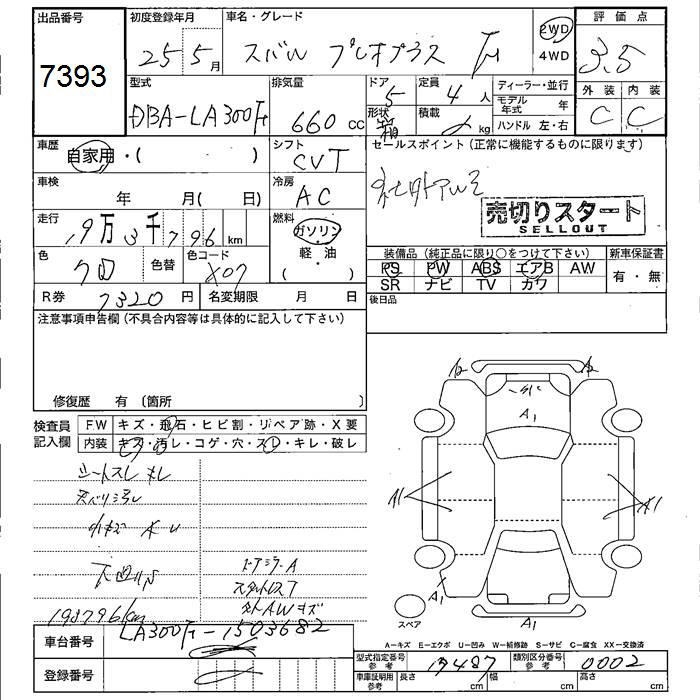 出品番号
7393
初度登録年月
25 5月
車名・グレード
スバル プレオプラス F
2WD
4WD
評価点
3.5
外装 内装
C C
型式
DBA-LA300F
排気量
660 cc
ドア
5
形状
箱
定員
4人
積載
kg
ディーラー・並行
モデル年式 年
ハンドル 左・右
車歴
自家用・( )
シフト
CVT
セールスポイント(正常に機能するものに限ります)
社外アルミ
売切りスタート
SELLOUT
車検
年 月( 日)
冷房
AC
走行
19万 3千796 km
燃料
ガソリン
軽・油
( )
色
クロ
色替
色コード
X07
装備品(純正品に限り○をつけて下さい)
PS PW ABS エアB AW
SR ナビ TV カワ
新車保証書
有・無
R券 7320円
名変期限 月 日
後日品
注意事項申告欄(不具合内容等は具体的に記入して下さい)
修復歴 有 〔箇所 〕
検査員記入欄
FW キズ・飛石・ヒビ割・リペア跡・X要
内装 キズ・汚レ・コゲ・穴・スレ・キレ・破レ
シートスレ キレ
天バリ汚レ
小キズ
下廻りサ
193796km
ドアミラーA
スタットレス
社外AWキズ
A1
A1
A1
A1
A1
スペア
A=キズ E=エクボ U=凹み W=補修跡 S=サビ C=腐食 XX=交換済
車台番号
LA300F-1503682
登録番号
型式指定番号 参考
17487
類別区分番号 参考
0002
車庫証明用 参考
長さ cm
幅 cm
高さ cm